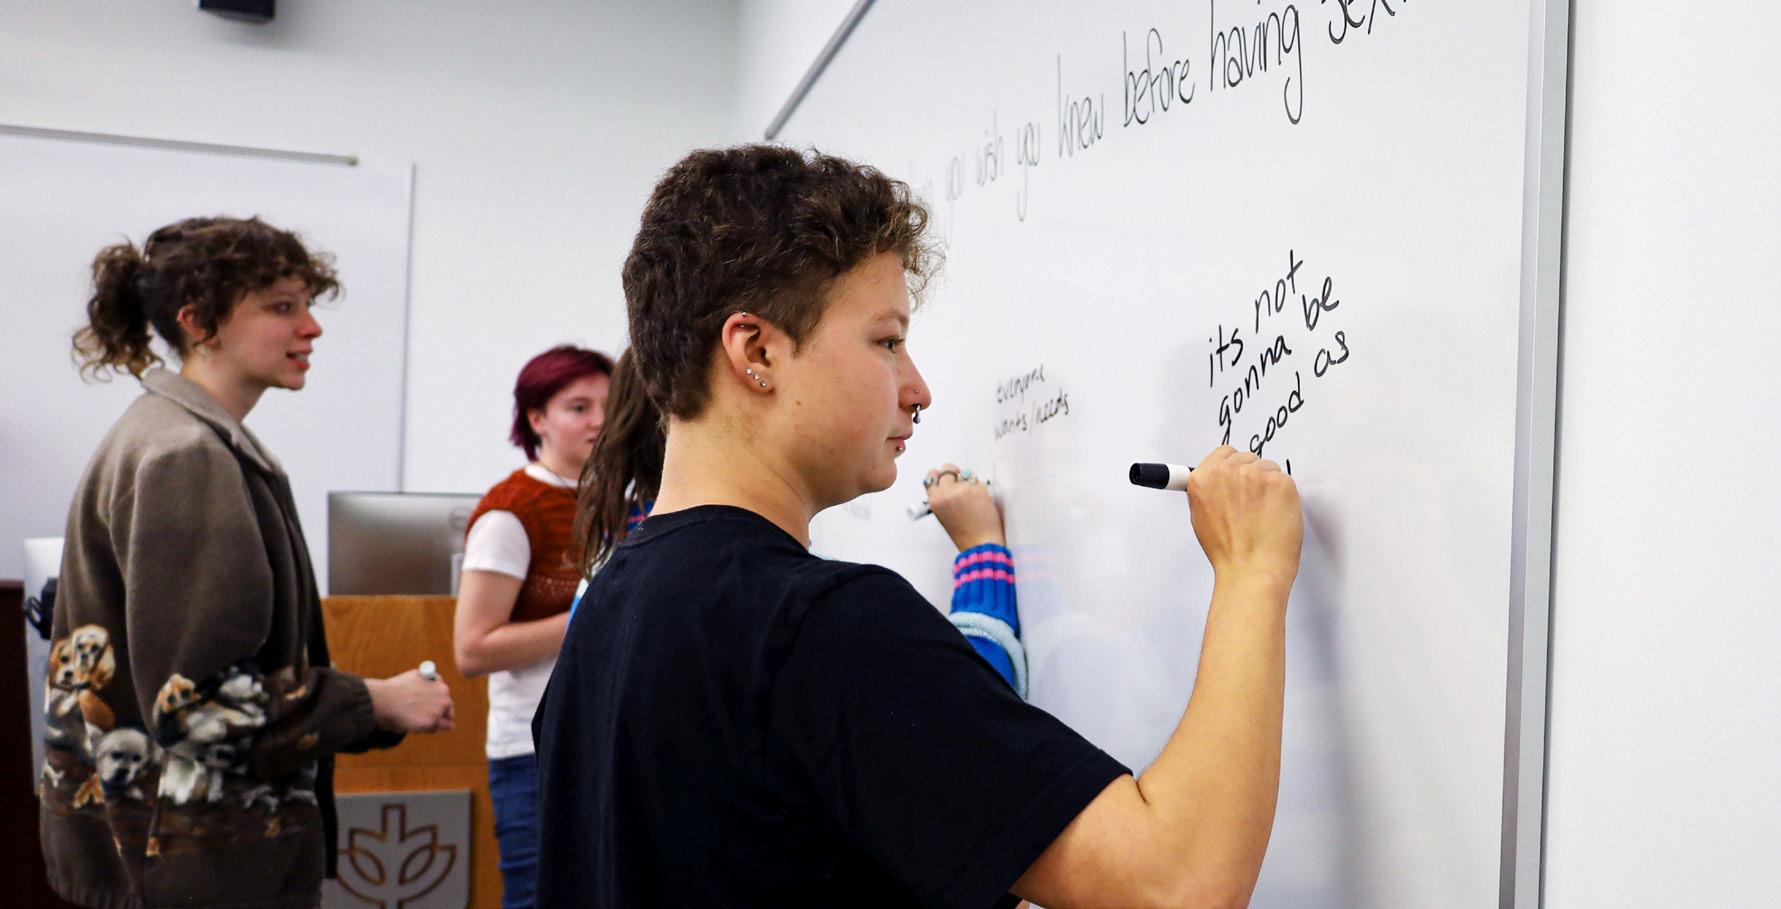 you wish you knew before having sex?
everyone
wants/needs
its not
gonna be
good as